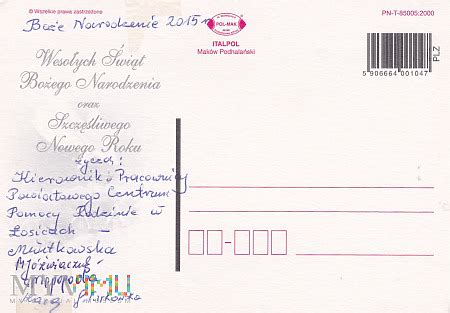 © Wszelkie prawa zastrzeżone
Boże Narodzenie 2015 r
POL-MAK
ITALPOL
Maków Podhalański
PN-T-85005:2000
5 906664 001047
PLZ
Wesołych Świąt
Bożego Narodzenia
oraz
Szczęśliwego
Nowego Roku
życzą:
Kierownik i Pracownicy
Powiatowego Centrum
Pomocy Rodzinie w
Łosicach –